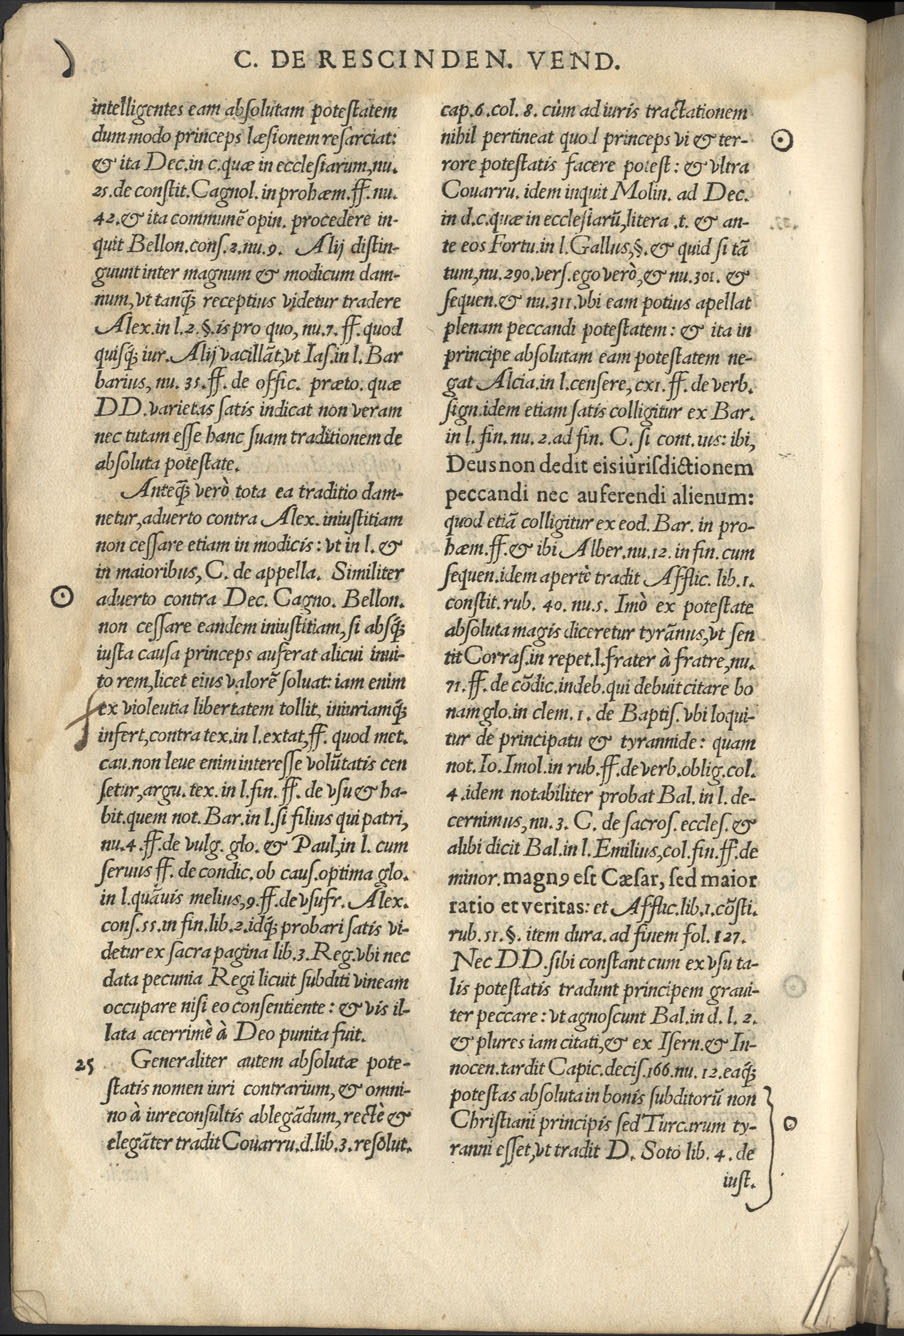 C. DE RESCINDEN. VEND.
intelligentes eam absolutam potestatem
dummodo princeps læsionem resarciat:
& ita Dec. in c. quæ in ecclesiarum, nu.
25. de constit. Cagnol. in prohæm. ff. nu.
42. & ita communē opin. procedere in-
quit Bellon. cons. 2. nu. 9. Alij distin-
guunt inter magnum & modicum dam-
num, vt tanq̃ receptius videtur tradere
Alex. in l. 2. §. is pro quo, nu. 7. ff. quod
quisq̃ iur. Alij vacillāt, vt Ias. in l. Bar
barius, nu. 35. ff. de offic. præto. quæ
DD. varietas satis indicat non veram
nec tutam esse hanc suam traditionem de
absoluta potestate.
Anteq̃ verò tota ea traditio dam-
netur, aduerto contra Alex. iniustitiam
non cessare etiam in modicis: vt in l. &
in maioribus, C. de appella. Similiter
aduerto contra Dec. Cagno. Bellon.
non cessare eandem iniustitiam, si absq̃
iusta causa princeps auferat alicui inui-
to rem, licet eius valorē soluat: iam enim
ex violeutia libertatem tollit, iniuriamq̃
infert, contra tex. in l. extat, ff. quod met.
cau. non leue enim interesse volūtatis cen
setur, argu. tex. in l. fin. ff. de vsu & ha-
bit. quem not. Bar. in l. si filius qui patri,
nu. 4. ff. de vulg. glo. & Paul, in l. cum
seruus ff. de condic. ob caus. optima glo.
in l. quāuis melius, 9. ff. de vsufr. Alex.
cons. 55. in fin. lib. 2. idq̃ probari satis vi-
detur ex sacra pagina lib. 3. Reg. vbi nec
data pecunia Regi licuit subditi vineam
occupare nisi eo consentiente: & vis il-
lata acerrimè à Deo punita fuit.
25 Generaliter autem absolutæ pote-
statis nomen iuri contrarium, & omni-
no à iureconsultis ablegādum, rectè &
elegāter tradit Couarru. d. lib. 3. resolut.
cap. 6. col. 8. cùm ad iuris tractationem
nihil pertineat quod princeps vi & ter-
rore potestatis facere potest: & vltra
Couarru. idem inquit Molin. ad Dec.
in d. c. quæ in ecclesiarū, litera .t. & an-
te eos Fortu. in l. Gallus, §. & quid si tā
tum, nu. 290. vers. ego verò, & nu. 301. &
sequen. & nu. 311. vbi eam potius apellat
plenam peccandi potestatem: & ita in
principe absolutam eam potestatem ne-
gat Alcia. in l. censere, cxi. ff. de verb.
sign. idem etiam satis colligitur ex Bar.
in l. fin. nu. 2. ad fin. C. si cont. ius: ibi,
Deus non dedit eis iurisdictionem
peccandi nec auferendi alienum:
quod etiā colligitur ex eod. Bar. in pro-
hæm. ff. & ibi Alber. nu. 12. in fin. cum
sequen. idem apertè tradit Afflic. lib. 1.
constit. rub. 40. nu. 5. Imò ex potestate
absoluta magis diceretur tyrānus, vt sen
tit Corras. in repet. l. frater à fratre, nu.
71. ff. de cōdic. indeb. qui debuit citare bo
nam glo. in clem. 1. de Baptis. vbi loqui-
tur de principatu & tyrannide: quam
not. Io. Imol. in rub. ff. de verb. oblig. col.
4. idem notabiliter probat Bal. in l. de-
cernimus, nu. 3. C. de sacros. eccles. &
alibi dicit Bal. in l. Emilius, col. fin. ff. de
minor. magnꝰ est Cæsar, sed maior
ratio et veritas: et Afflic. lib. 1. cōsti.
rub. 51. §. item dura. ad finem fol. 127.
Nec DD. sibi constant cum ex vsu ta-
lis potestatis tradunt principem graui-
ter peccare: vt agnoscunt Bal. in d. l. 2.
& plures iam citati, & ex Isern. & In-
nocen. tardit Capic. decis. 166. nu. 12. eaq̃
potestas absoluta in bonis subditorū non
Christiani principis sed Turcarum ty-
ranni esset, vt tradit D. Soto lib. 4. de
iust.